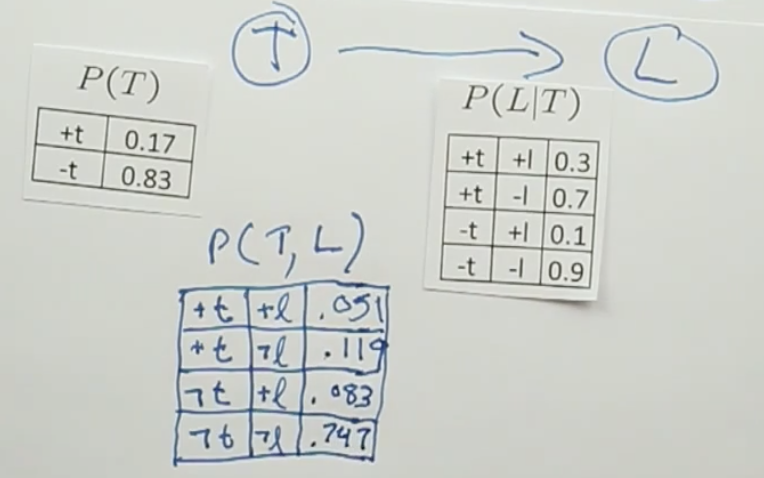 T L
P(T)
+t 0.17
-t 0.83
P(L|T)
+t +l 0.3
+t -l 0.7
-t +l 0.1
-t -l 0.9
P(T, L)
+t +l .051
+t ¬l .119
¬t +l .083
¬t ¬l .747